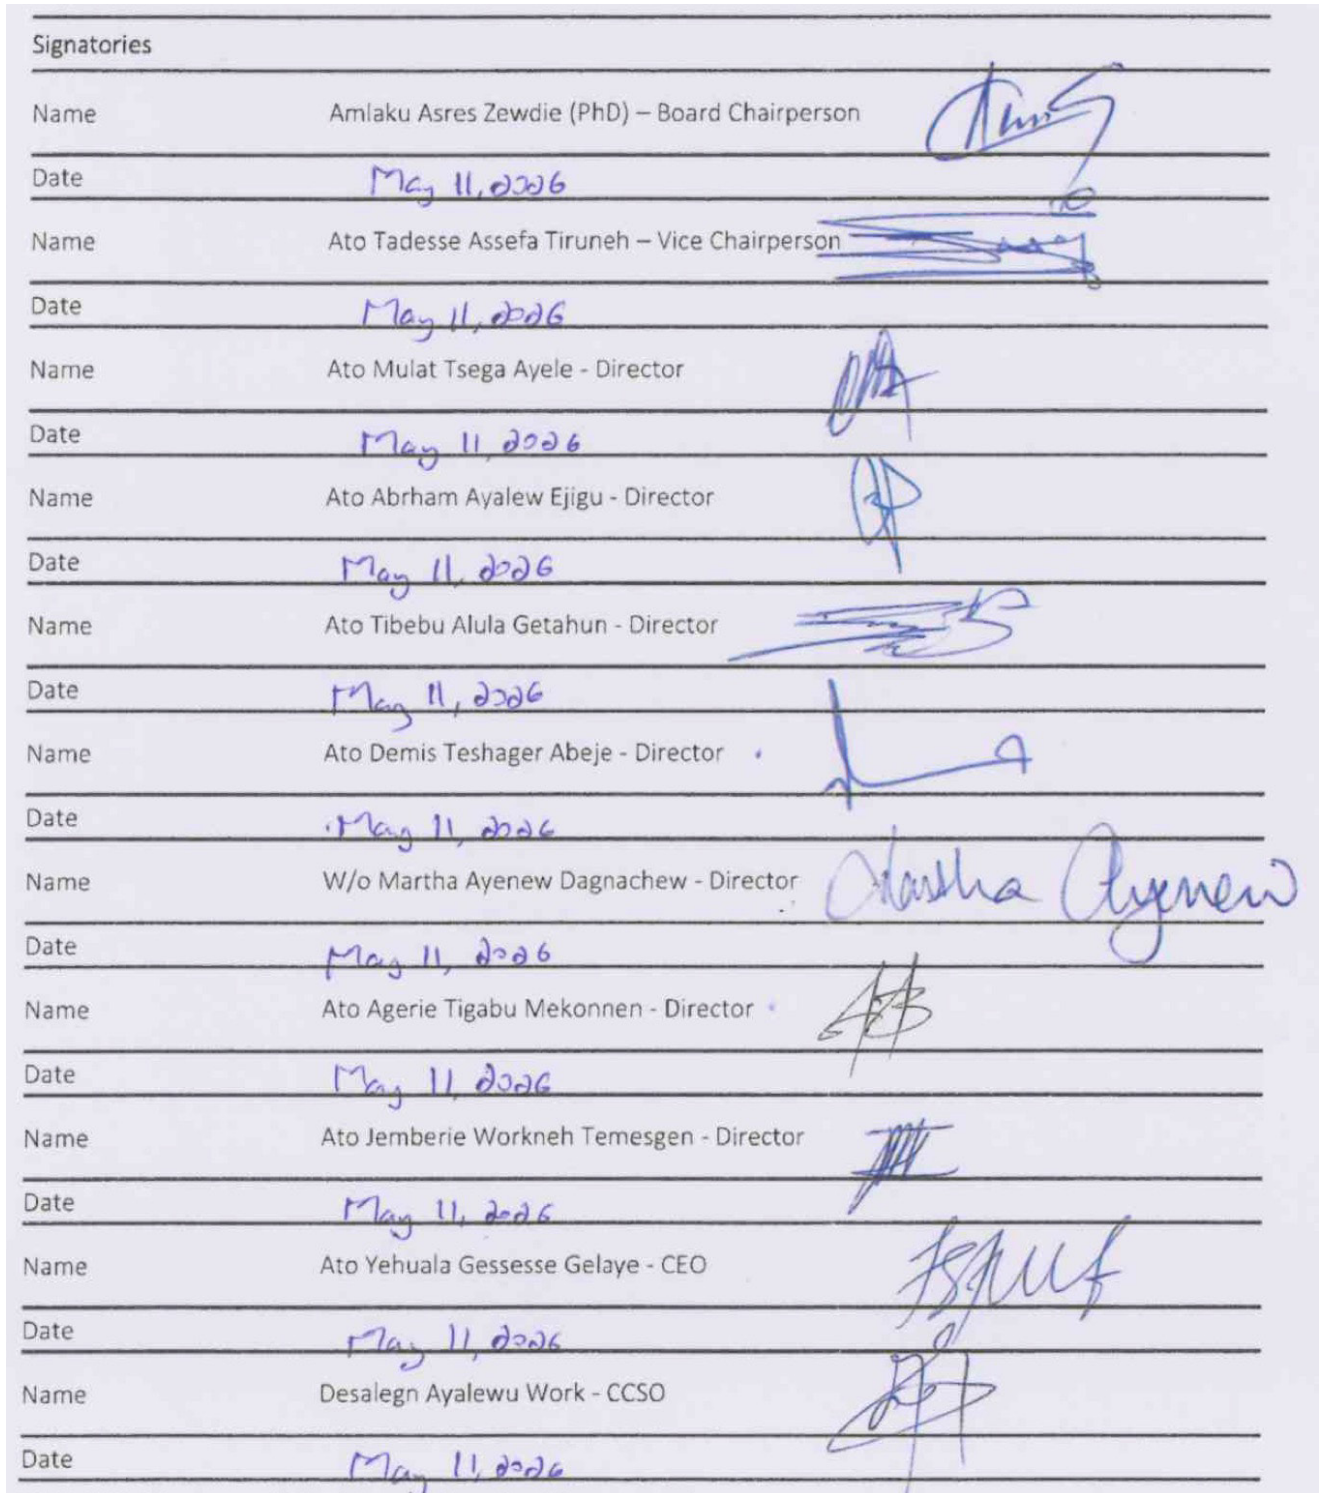 Signatories
Name Amlaku Asres Zewdie (PhD) – Board Chairperson
Date May 11, 2026
Name Ato Tadesse Assefa Tiruneh – Vice Chairperson
Date May 11, 2026
Name Ato Mulat Tsega Ayele - Director
Date May 11, 2026
Name Ato Abrham Ayalew Ejigu - Director
Date May 11, 2026
Name Ato Tibebu Alula Getahun - Director
Date May 11, 2026
Name Ato Demis Teshager Abeje - Director
Date May 11, 2026
Name W/o Martha Ayenew Dagnachew - Director Martha Ayenew
Date May 11, 2026
Name Ato Agerie Tigabu Mekonnen - Director
Date May 11, 2026
Name Ato Jemberie Workneh Temesgen - Director
Date May 11, 2026
Name Ato Yehuala Gessesse Gelaye - CEO
Date May 11, 2026
Name Desalegn Ayalewu Work - CCSO
Date May 11, 2026